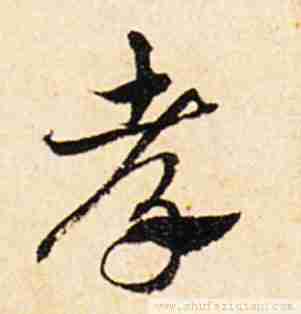 孝
www.shufaziqian.com